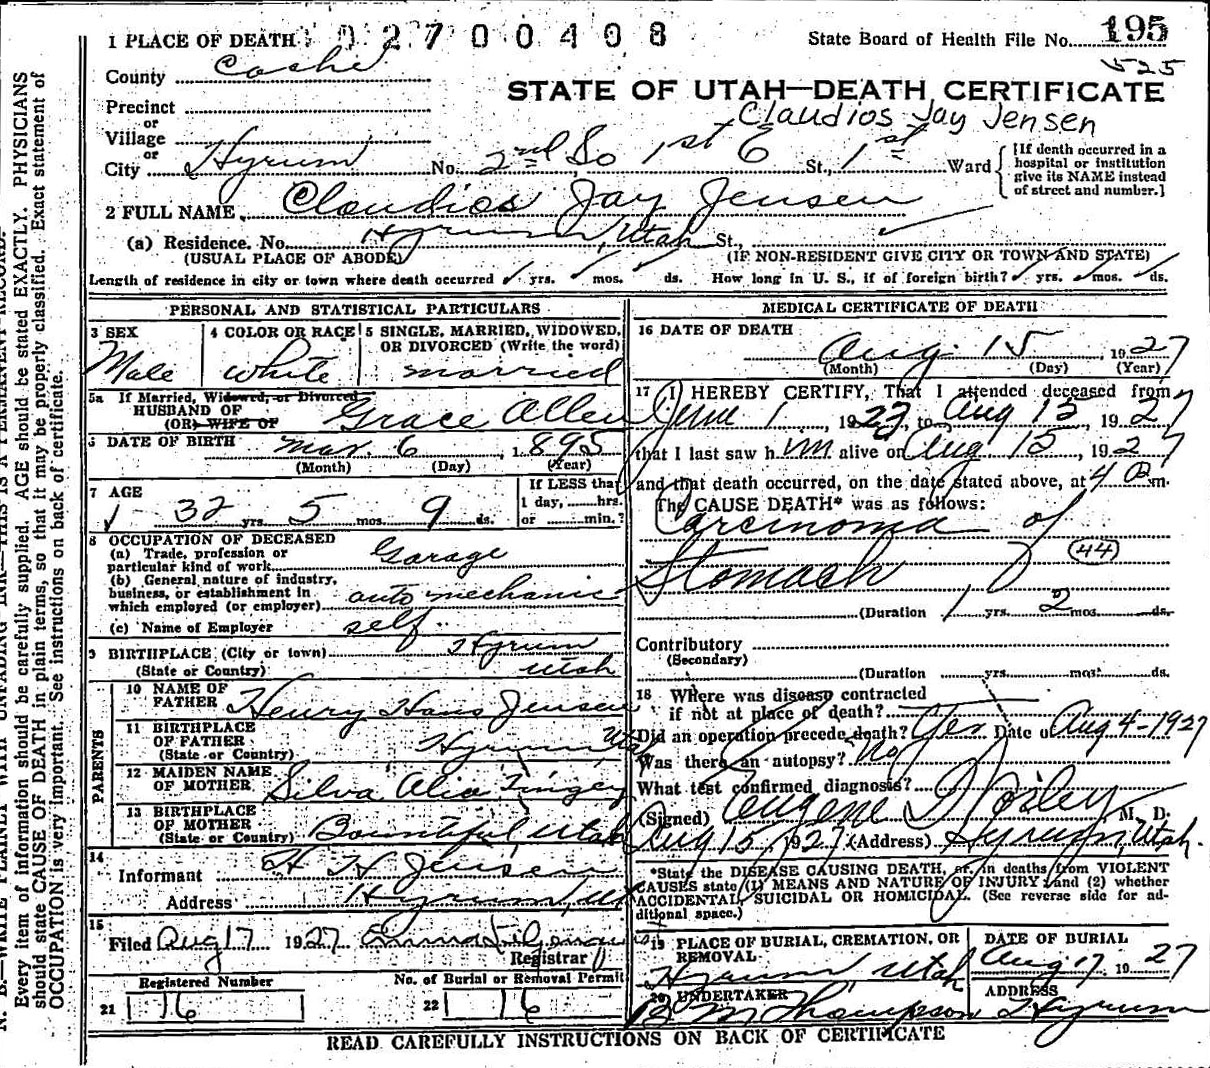 1 PLACE OF DEATH 02700408 State Board of Health File No. 195
County Cache 525
STATE OF UTAH—DEATH CERTIFICATE
Precinct
or
Claudios Jay Jensen
Village
or
City Hyrum No. 2nd So 1st E St., 1st Ward
[If death occurred in a
hospital or institution
give its NAME instead
of street and number.]
2 FULL NAME Claudios Jay Jensen
(a) Residence. No. Hyrum, Utah St.,
(USUAL PLACE OF ABODE) (IF NON-RESIDENT GIVE CITY OR TOWN AND STATE)
Length of residence in city or town where death occurred yrs. mos. ds. How long in U. S., if of foreign birth? yrs. mos. ds.
PERSONAL AND STATISTICAL PARTICULARS
3 SEX
Male
4 COLOR OR RACE
white
5 SINGLE, MARRIED, WIDOWED,
OR DIVORCED (Write the word)
married
5a If Married, Widowed, or Divorced
HUSBAND OF
(OR) WIFE OF Grace Allen
6 DATE OF BIRTH Mar. 6, 1895
(Month) (Day) (Year)
7 AGE
32 yrs. 5 mos. 9 ds.
If LESS than
1 day, hrs.
or min.?
8 OCCUPATION OF DECEASED
(a) Trade, profession or
particular kind of work Garage
(b) General nature of industry,
business, or establishment in
which employed (or employer) auto mechanic
(c) Name of Employer self
9 BIRTHPLACE (City or town) Hyrum
(State or Country) Utah
PARENTS
10 NAME OF
FATHER Henry Hans Jensen
11 BIRTHPLACE
OF FATHER
(State or Country) Hyrum, Utah
12 MAIDEN NAME
OF MOTHER Silva Alia Tingey
13 BIRTHPLACE
OF MOTHER
(State or Country) Bountiful, Utah
14
Informant H H Jensen
Address Hyrum, Ut
15
Filed Aug 17 1927
Registrar
Registered Number
21 76
No. of Burial or Removal Permit
22 76
MEDICAL CERTIFICATE OF DEATH
16 DATE OF DEATH
Aug. 15, 1927
(Month) (Day) (Year)
17 I HEREBY CERTIFY, That I attended deceased from
June 1, 1927, to Aug 15, 1927
that I last saw him alive on Aug. 15, 1927
and that death occurred, on the date stated above, at 4 m.
The CAUSE DEATH* was as follows:
Carcinoma of
44
Stomach
(Duration 1 yrs. 2 mos. ds.
Contributory
(Secondary)
(Duration yrs. mos. ds.
18 Where was disease contracted
if not at place of death?
Did an operation precede death? Yes Date of Aug 4-1927
Was there an autopsy? No
What test confirmed diagnosis?
(Signed) Eugene Worley M. D.
Aug 15, 1927 (Address) Hyrum, Utah.
*State the DISEASE CAUSING DEATH, or, in deaths from VIOLENT
CAUSES state (1) MEANS AND NATURE OF INJURY and (2) whether
ACCIDENTAL, SUICIDAL OR HOMICIDAL. (See reverse side for ad-
ditional space.)
19 PLACE OF BURIAL, CREMATION, OR
REMOVAL
Hyrum Utah
DATE OF BURIAL
Aug 17, 1927
20 UNDERTAKER
B M Thompson
ADDRESS
Hyrum
READ CAREFULLY INSTRUCTIONS ON BACK OF CERTIFICATE
N. B.—WRITE PLAINLY WITH UNFADING INK—THIS IS A PERMANENT RECORD.
Every item of information should be carefully supplied. AGE should be stated EXACTLY. PHYSICIANS
should state CAUSE OF DEATH in plain terms, so that it may be properly classified. Exact statement of
OCCUPATION is very important. See instructions on back of certificate.